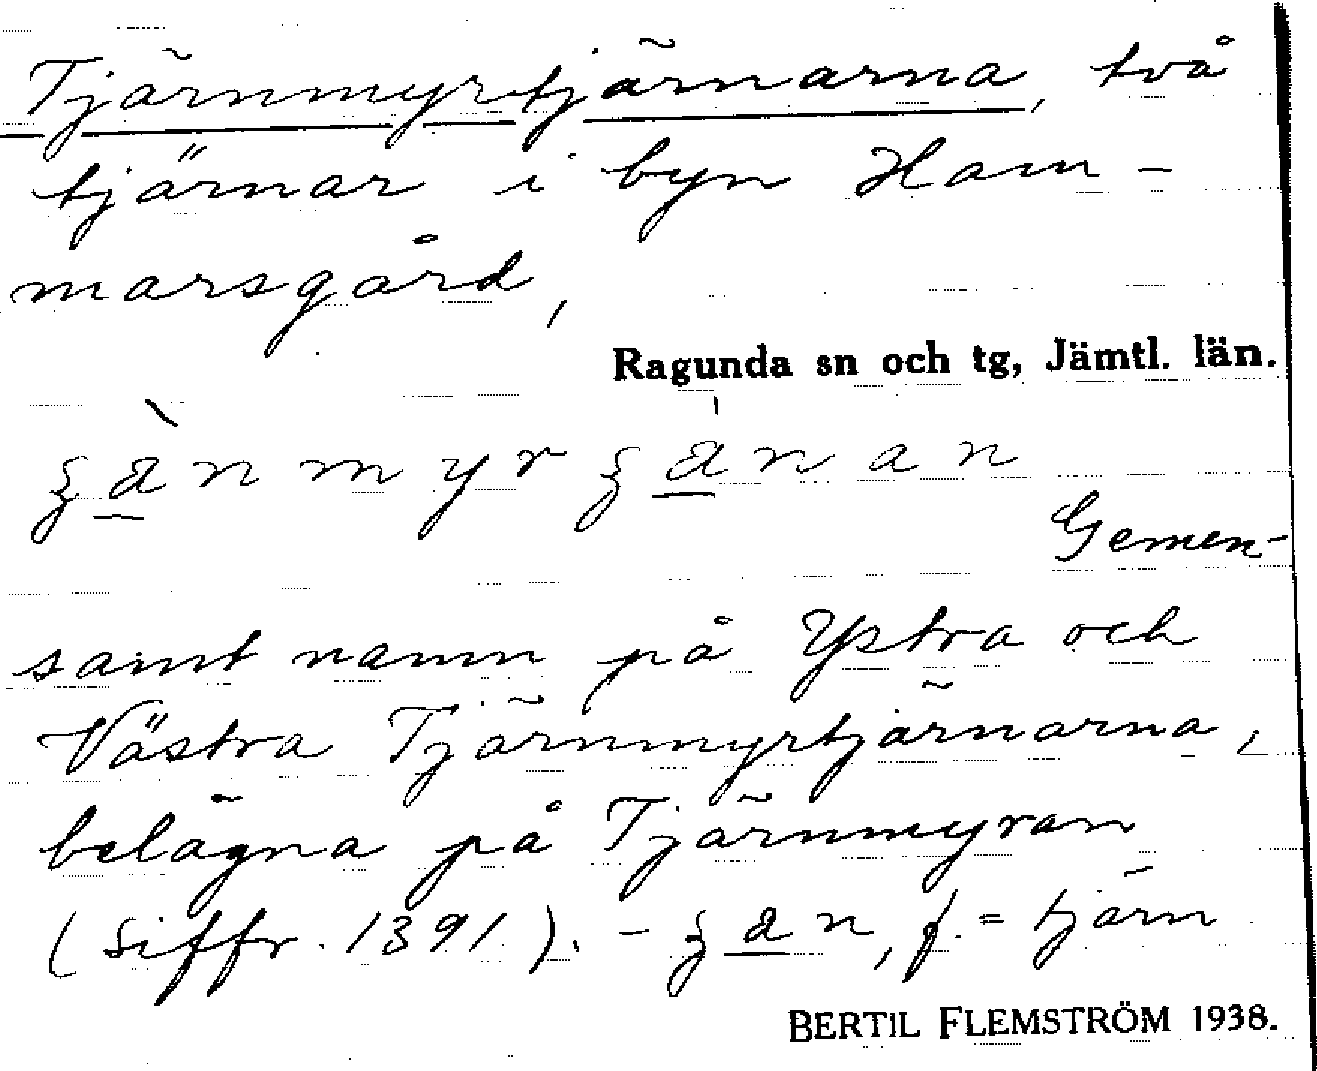 Tjärnmyrtjärnarna, två
tjärnar i byn Ham-
marsgård,
Ragunda sn och tg, Jämtl. län.
Gemen-
samt namn på Ystra och
Västra Tjärnmyrtjärnarna,
belägna på Tjärnmyran
(siffr. 1391). - f. = tjärn
BERTIL FLEMSTRÖM 1938.